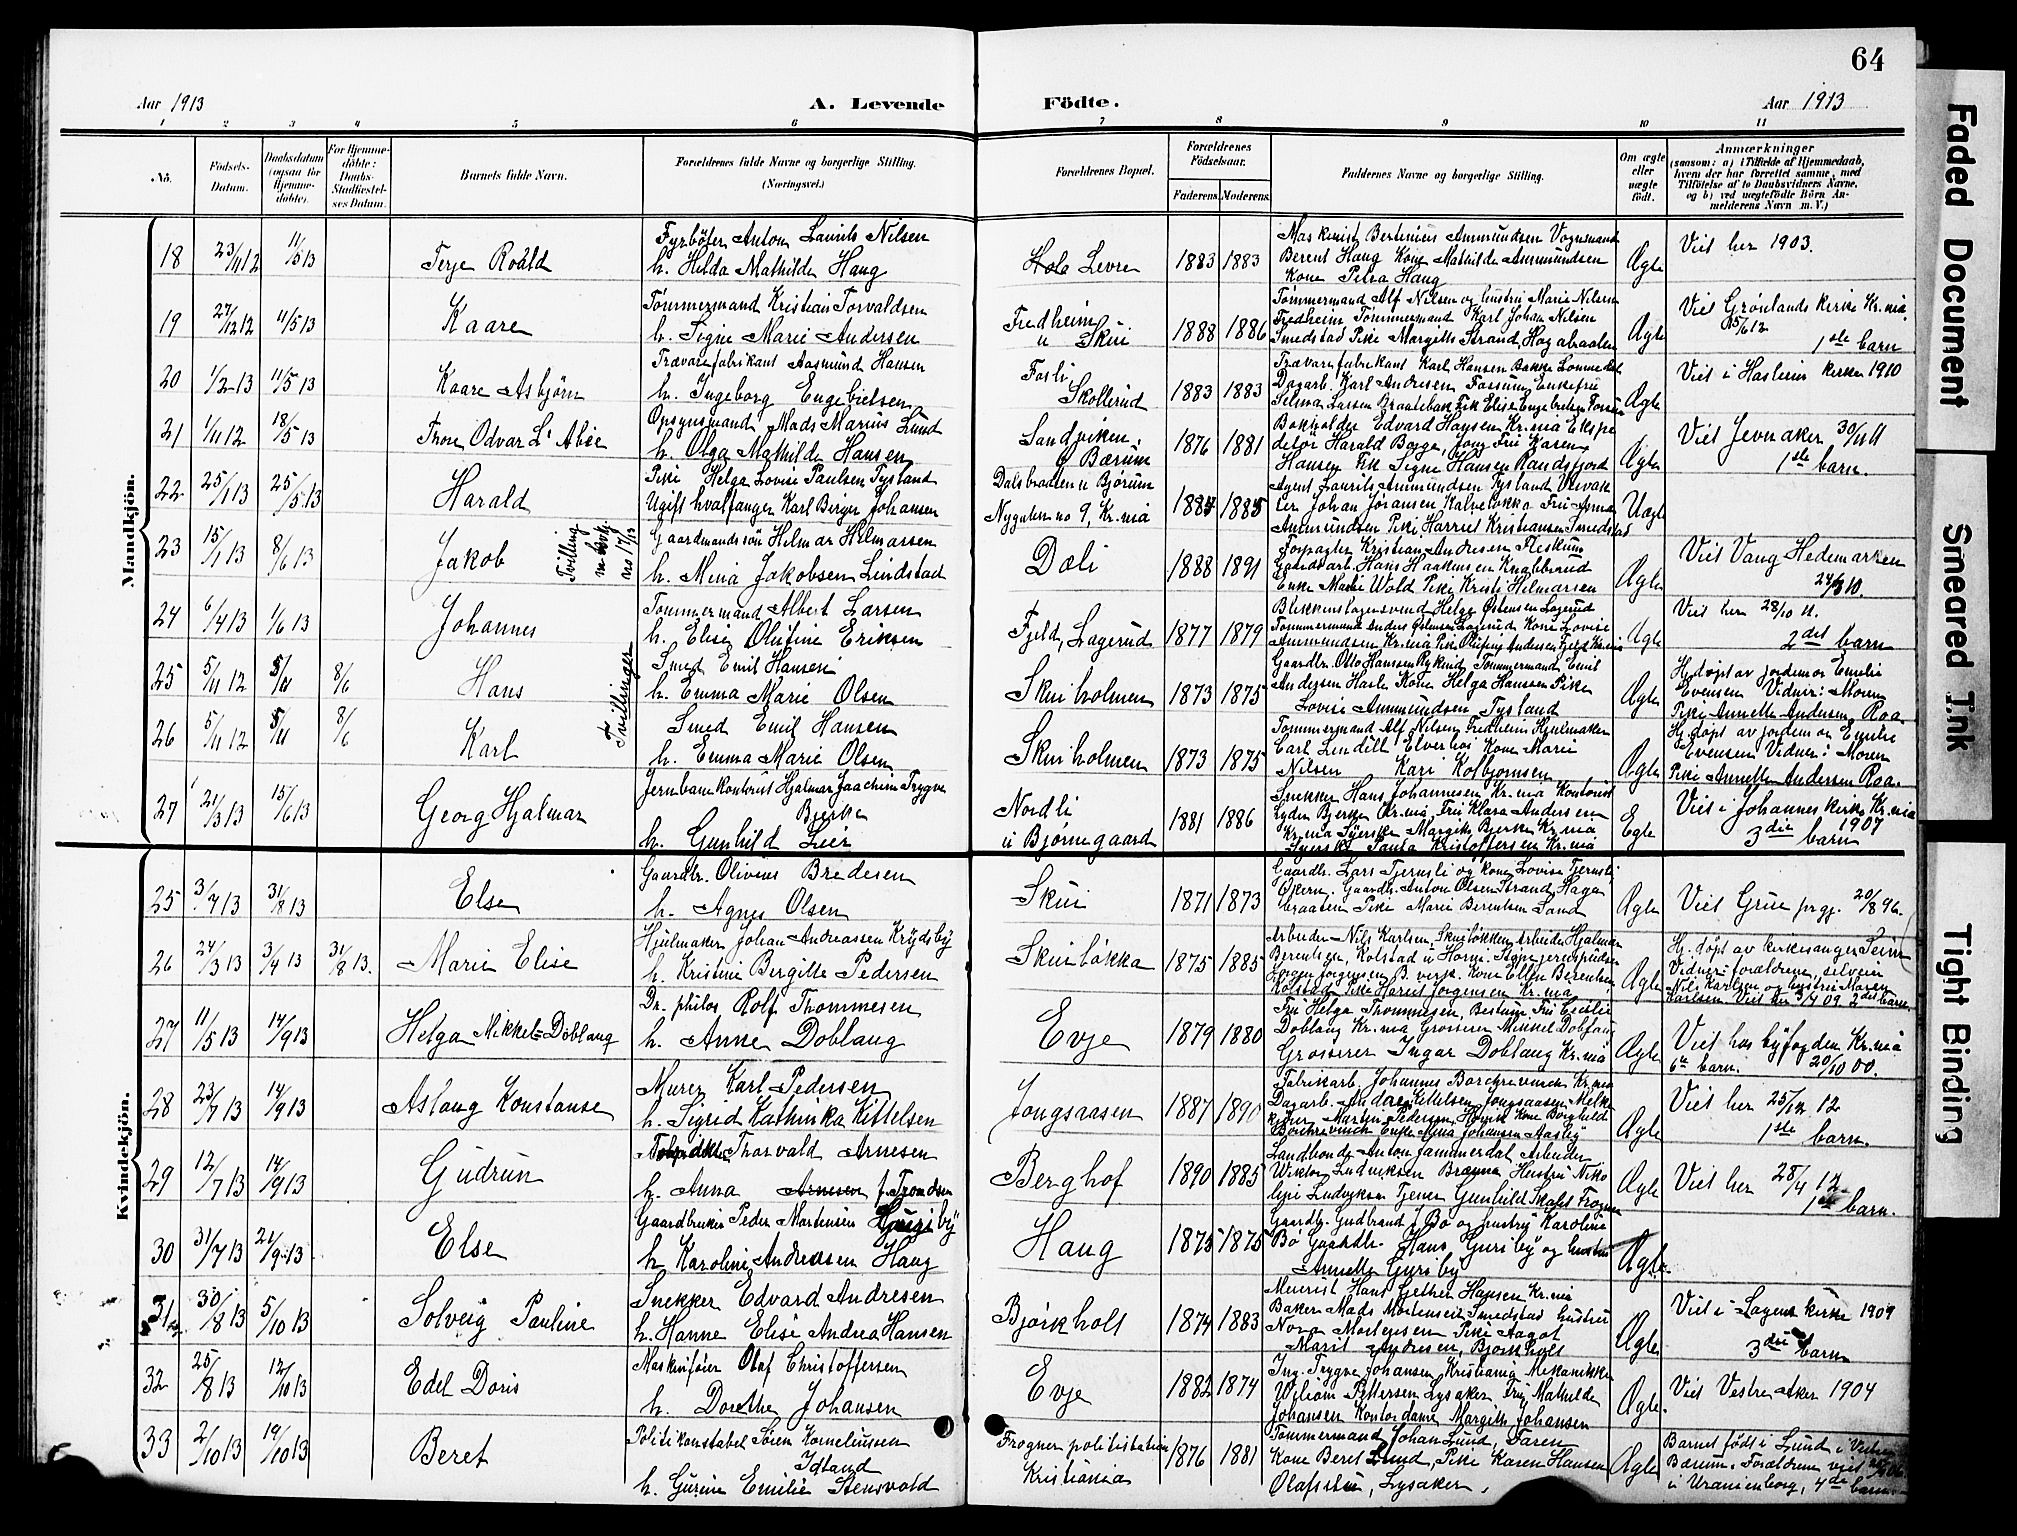 64
Aar 1913
A. Levende
Födte.
Aar 1913
1 2 3 4 5 6 7 8 9 10 11
No.
Födsels-Datum.
Daabsdatum (ogsaa for Hjemmedøbte).
For Hjemmedöbte: Daabs-Stadfæstelses Datum.
Barnets fulde Navn.
Forældrenes fulde Navne og borgerlige Stilling. (Næringsvei.)
Forældrenes Bopæl.
Forældrenes Födselsaar.
Faderens. Moderens.
Faddernes Navne og borgerlige Stilling.
Om ægte eller uægte födt.
Anmærkninger
(saasom: a) i Tilfælde af Hjemmedaab, hvem der har forrettet samme, med Tilföielse af to Daabsvidners Navne, og b) ved uægtefödte Börn Anmelderens Navn m. V.)
Mandkjön.
18 23/11 12 11/5 13 Terje Roald
Fyrbøter Anton Laurits Nilsen
h. Helda Mathilde Haug
Levre 1883 1883
Maskinist Bertinius Ammundsen Vognsmand
Berent Haug Kone Mathilde Ammundsen
Kone Petra Haug
Ægte
Viet her 1903.
19 27/12 12 11/5 13 Kaare
Tømmermand Kristian Torvaldsen
h. Signe Marie Andersen
Fredheim
u Skui 1888 1886
Tømmermand Alf Nilsen og hustru Marie Nilsen
Fredheim Tømmermand Karl Johan Nilsen
Smedstad Pike Margith Strand, Hagabraaten
Ægte
Viet Grønlands kirke Kr.nia
15/6 12
1ste barn
20 1/2-13 11/5 13 Kaare Asbjørn
Trævarefabrikant Aasmund Hansen
h. Ingeborg Engebretsen
Fosli
Skollerud 1883 1883
Trævarefabrikant Karl Hansen Bakke Lommedal
Dagarb. Karl Andresen Fossum Enkefru
Selma Larsen Braatebak Frk Elise Engebretsen Fossum
Ægte
Viet i Haslum kirke 1910
21 1/11 12 18/5 13 Thore Odvar L' Abée
Opsynsmand Mads Marius Lund
h. Olga Mathilde Hansen
Sandviken
Bærum 1876 1881
Bokholder Edvard Hansen Kr.nia Ekspe
ditør Harald Borge, Jong Fru Karen
Hansen Frk Signe Hansen Randsfjord
Ægte
Viet Jevnaker 30/11 11
1ste barn.
22 25/1 13 25/5 13 Harald
Pike Helga Lovise Paulsen Tysland
Ugift hvalfanger Karl Birger Johansen
Dalsbraaten u Bjørum
Nygaten no 9, Kr.nia 1884 1885
Agent Laurits Ammundsen Tysland
Johan Jøransen, Kalveløkka Fru Anna
Ammundsen Pike Harriet Kristiansen Smedstad
Uægte
23 15/1 13 8/6 13 Jakob
Tvilling
no 17/13
Gaardmandssøn Helmar Helmarsen
h. Mina Jakobsen Lindstad
Dæli 1888 1891
Forpagter Kristian Andresen Fleskum
Gaardsarb. Hans Haakensen Knabberud
Enke Marie Wold Pike Kristi Helmarsen
Ægte
Viet Vang Hedemarken
10.
24 6/4 13 1/6 13 Johannes
Tømmermand Albert Larsen
h. Elise Olufine Eriksen
Fjeld, Lagerud 1877 1879
Blikkenslagersvend Helge Østensen Lagerud
Tømmermand Anders Østensen Lagerud Kone Lovise
Ammundsen Kr.nia Pike Olufine Andersen Fjeld
Ægte
Viet her 28/10 11.
2det barn
25 5/11 12 5/11 8/6 Hans
Tvillinger
Smed Emil Hansen
h. Emma Marie Olsen
Skuiholmen 1873 1875
Gaardbr. Otto Hansen Rykind Tømmermand Emil
Andersen Horle Kone Helga Hansen Pike
Lovise Ammundsen Tysland
Ægte
Hj. døpt av jordemor Emilie
Evensen Vidner: Moren
Pike Annette Andersen Roa
26 5/11 12 5/11 8/6 Karl
Smed Emil Hansen
h. Emma Marie Olsen
Skuiholmen 1873 1875
Tømmermand Alf Nilsen Fredheim Hjulmaker
Carl Elverhøi Kone Marie
Nilsen Kari Kolbjørnsen
Ægte
Hj. døpt av jordemor Emilie
Evensen Vidner: Moren
Pike Annette Andersen Roa
27 21/3 13 15/6 13 Georg Hjalmar
Jernbanekontorist Hjalmar Joachim Trygve
Bjerke
h. Gunhild Lier
Nordli
u Bjørnegaard 1881 1886
Snekker Hans Johannesen Kr.nia Kontorist
Lyder Bjerke Kr.nia, Fru Klara Andersen
Kr.nia Syerske Margith Bjerke Kr.nia
Syerske Paula Kristoffersen Kr.nia
Egte
Viet i Johannes kirke Kr.nia
1907
3die barn
Kvindekjön.
25 3/7 13 31/8 13 Else
Gaardbr. Olivius Bredesen
h. Agnes Olsen
Skui 1871 1873
Gaardb. Lars Tjernsli og kone Lovise Tjernsli
Økern. Gaardb. Anton Olsen Strand Haga
braaten Pike Marie Berntsen Sand
Ægte
Viet Grue prgj. 20/8 96.
26 24/3 13 3/4 13 31/8 13. Marie Elise
Hjulmaker Johan Andreassen Krydsby
h. Kristine Bergitte Pedersen
Skuiløkka 1875 1885
Arbeider Nils Karlsen, Skuiløkken Arbeider Hjalmar
Berentsen, Kolstad u Horni.
Jørgen Jørgensen B. verk. Kone Ellen Berentsen
Kolstad Pike Harriet Jørgensen Kr.nia
Ægte
Hj. døpt av kirkesanger Seim
Vidner: forældrene, selveier
Nils Karlsen og hustru Maren
Karlsen Viet her 3/4 09 2det barn
27 11/5 13 14/9 13 Helga Mikkel=Doblaug
Dr. philos Rolf Thommesen
h. Anne Doblaug
Evje 1879 1880
Fru Helga Thommesen, Bestum, Fru Cecilie
Doblaug Kr.nia Grosserer Mikkel Doblaug
Grosserer Ingar Doblaug Kr.nia
Ægte
Viet hos byfogden Kr.nia
6te barn. 20/10 00.
28 23/7 13 14/9 13 Aslaug Konstanse
Murer Karl Pedersen
h. Sigrid Kathinka Kittelsen
Jongsaasen 1887 1890
Fabrikarb. Johannes Borchrevinck Kr.nia
Dagarb. Anders Kittelsen Jongsaasen Melke
kjører Martin Pedersen Kone Borghild
Borchrevinck Enke Anna Johansen Aasly
Ægte
Viet her 25/12 12
1ste barn.
29 12/7 13 14/9 13 Gudrun
Thorvald Arnesen
h. Anna Arnesen f. Trondsen
Berghof 1890 1885
Landbonde Anton Jammerdal Arbeider
Wiktor Ludviksen Brenna Hustru Niko
line Ludviksen Tjener Gunhild Skolt Frogner
Ægte
Viet her 28/4 12
1ste barn.
30 31/7 13 21/9 13 Else
Gaardbruker Peder Mortensen Gursby
h Karoline Andreasen Haug
Haug 1875 1875
Gaardb. Gudbrand J Bø og hustru Karoline
Bø Gaardbr. Hans Gursby og hustru
Annette Gursby
Ægte
31 30/8 13 5/10 13 Solveig Pauline
Snekker Edvard Andresen
h. Hanne Elise Andrea Hansen
Bjørkholt 1874 1883
Hans Gethen Hansen Kr.nia
Baker Mads Mortensen Smedstad hustru
Nora Mortensen Pike Aagot
Marit Andresen, Bjørkholt
Ægte
Viet i kirke 1909
3die barn
32 25/8 13 12/10 13 Edel Doris
Maskinfører Olaf Christoffersen
h. Dorothe Johansen
Evje 1882 1874
Ing. Trygve Johansen Kristiania Mekanikker
Wiliam Pettersen Lysaker Fru Mathilde
Johansen Kontordame Margith Johansen
Ægte.
Viet Vestre Aker 1904
33 2/10 13 19/10 13 Beret
Politikonstabel Søren Korneliussen
Idland
h. Gurine Emilie Stensvold
Frogner politistation
Kristiania 1876 1881
Tømmermand Johan Lund, Faren
Kone Beret Lund, Pike Karen Hansen
Lysaker.
Ægte
Barnet født i Lund i Vestre
Bærum. Forældrene viet
i Uranienborg, 4de barn
Faded Document
Smeared Ink
Tight Binding